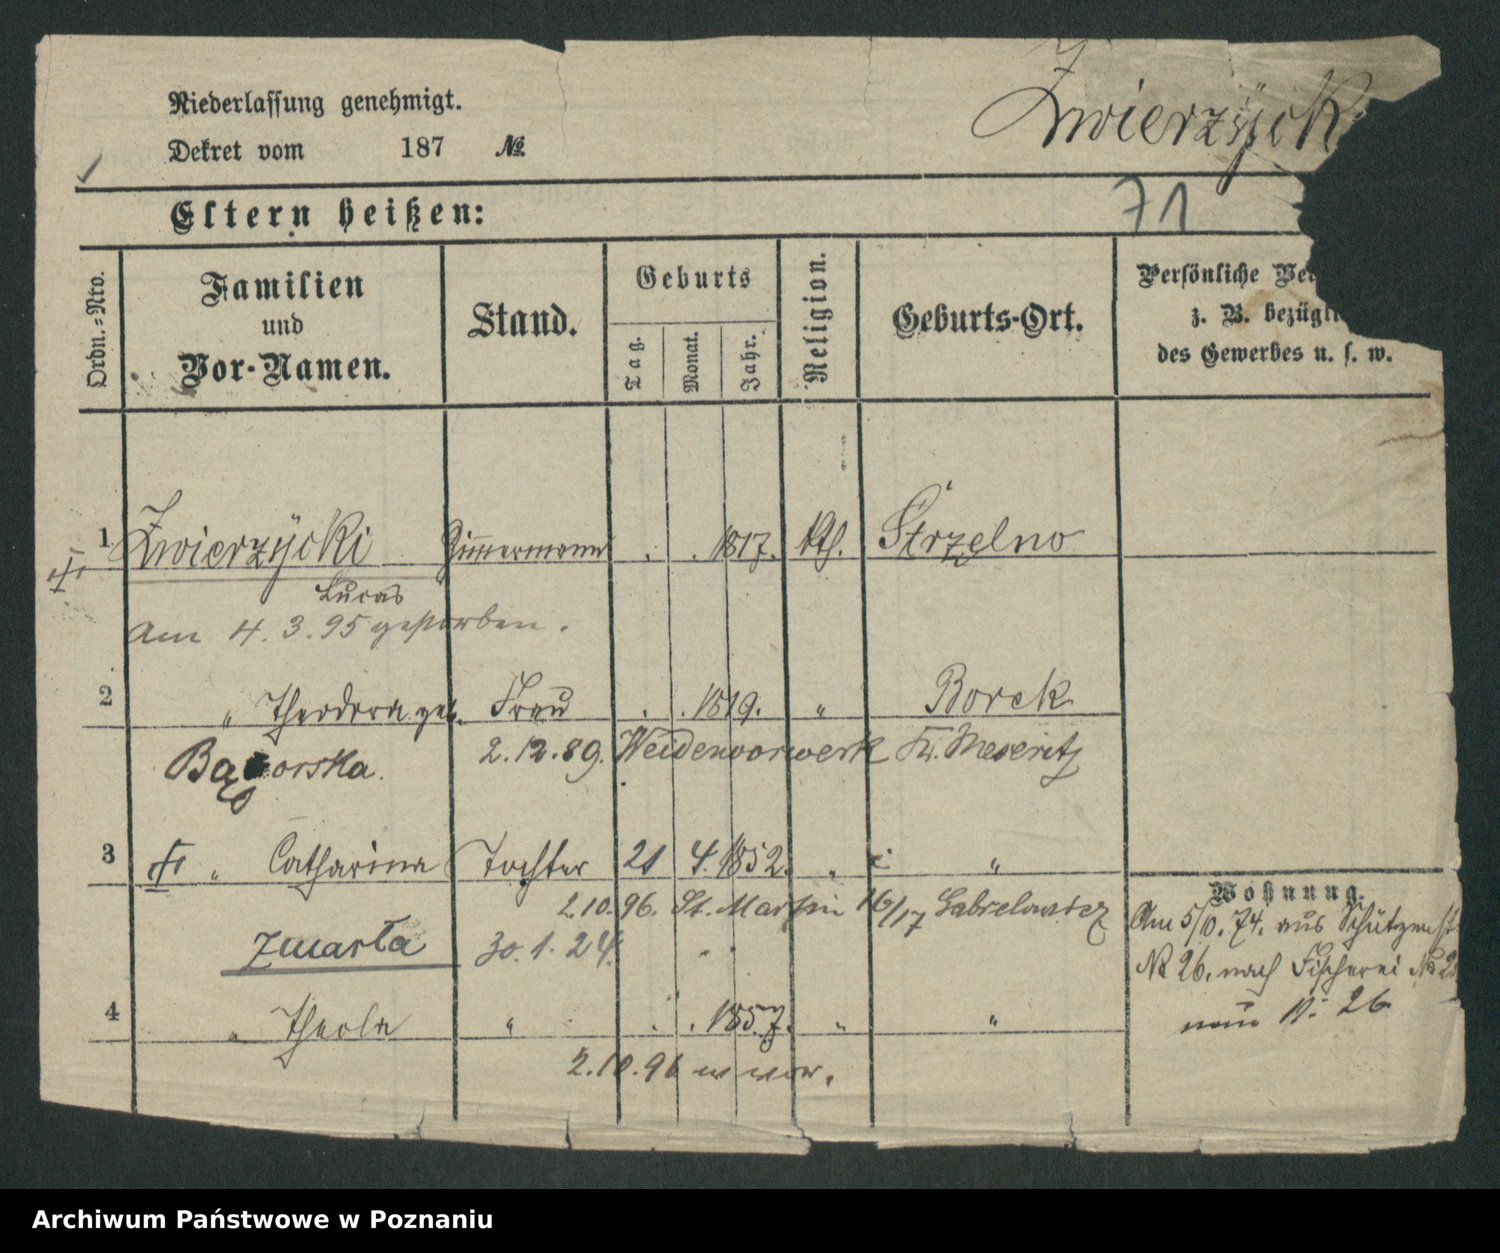 Niederlassung genehmigt.
Dekret vom 187 №
Zwierzÿck
71
Eltern heißen:
Ordn.=Nro.
Familien
und
Vor-Namen.
Stand.
Geburts
Tag.
Monat.
Jahr.
Religion.
Geburts-Ort.
Persönliche Ve
z. B. bezügli
des Gewerbes u. s. w.
1 Zwierzÿcki Zimmermann . . 1817. Kth. Strzelno
Lucas
Am 4.3.95 gestorben.
2 " Theodora geb. Frau . . 1819. " Borek
Bąkorska. 2.12.89. Weidenvorwerk Kr. Meseritz
3 " Catharina Tochter 21 4. 1852. " "
2.10.96. St. Martin 16/17 Gabrielowicz
Wohnung.
zmarła 30.1.24.
Am 5/10. 74. aus Schützenst
№ 26. nach Fischerei № 2
4 " Thecla " . . 1857. " "
neu N: 26
2.10.96 w vor.
Archiwum Państwowe w Poznaniu